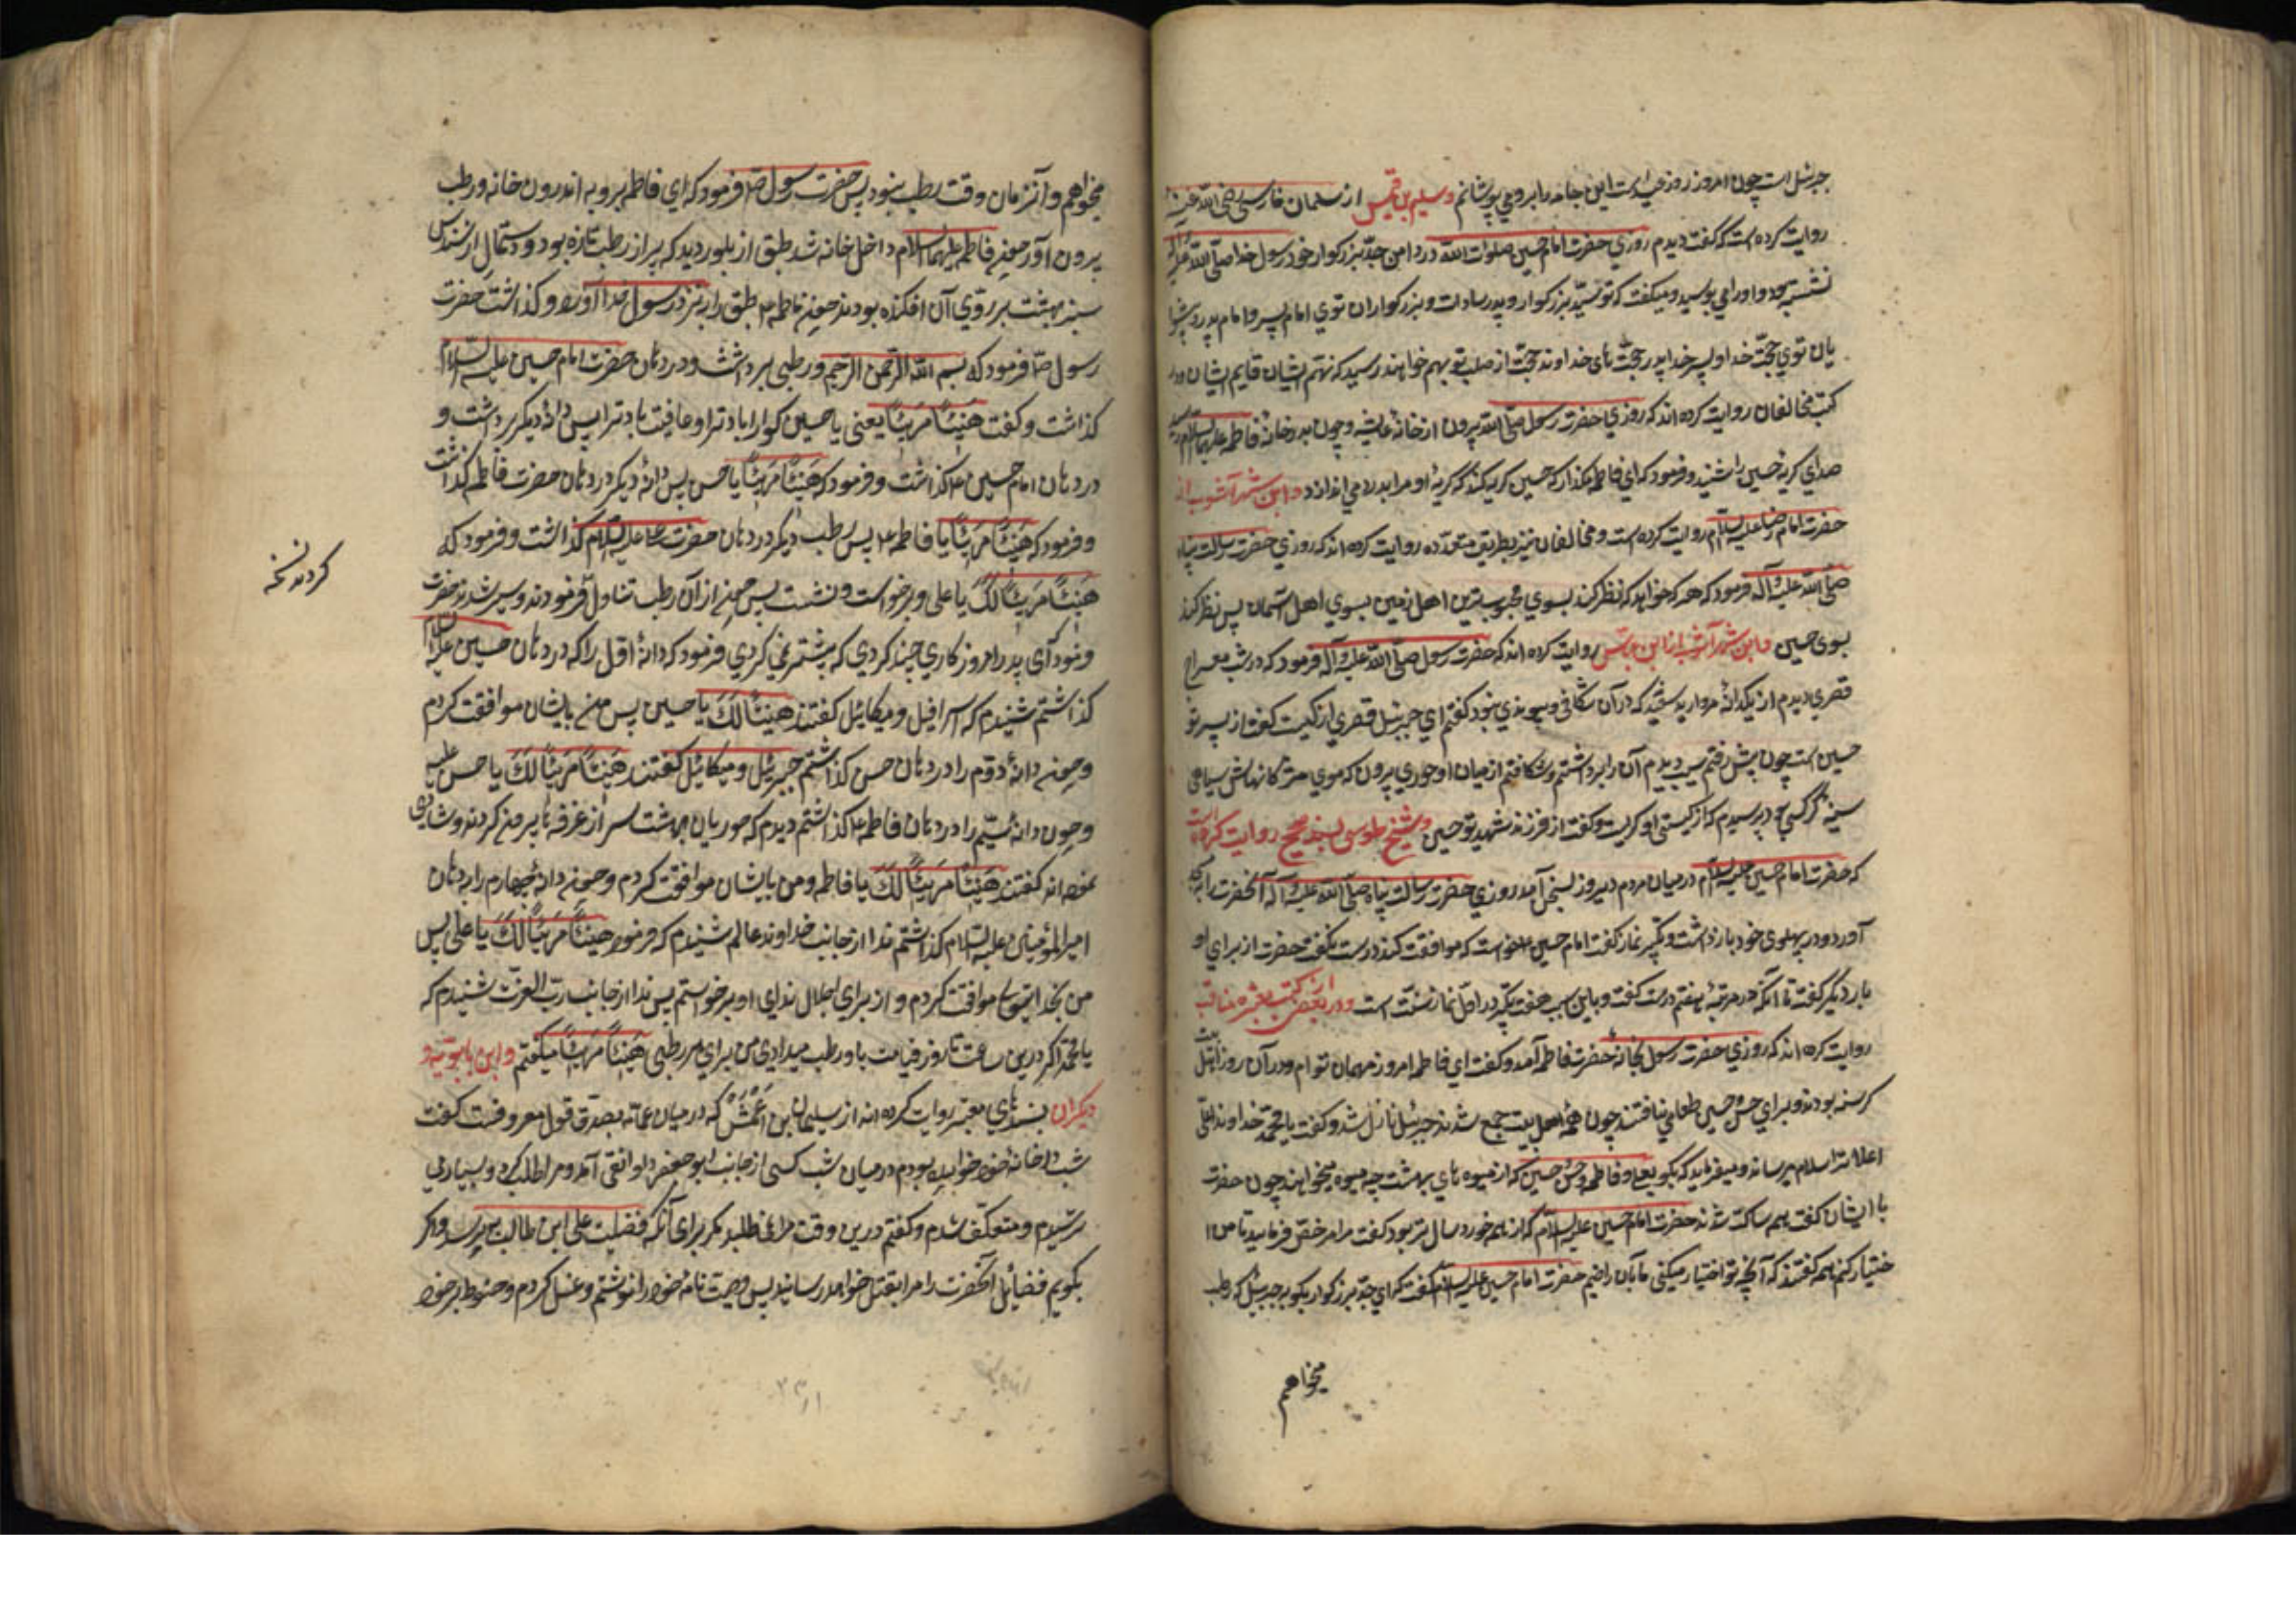 جبرئیل است چون امروز روز عید است این جامه را برو می پوشانم و سلیم بن قیس از سلمان فارسی رضی الله عنه
روایت کرده است که گفت دیدم روزی حضرت امام حسین صلوات الله در دامن جد بزرکوار خود رسول خدا صلی الله علیه و آله
نشسته بود و او را می بوسید و میکفت که تو سید بزرکوار و پدر سادات و بزرکواران توی امام پسر و امام پدر و پیشوا
یان توی حجت خدا و پسر خدا پدر حجت های خداوند حجت از صلب تو بهم خواهند رسید که نهم ایشان قایم ایشان و در
کتب مخالفان روایت کرده اند که روزی حضرت رسول صلی الله بیرون از خانه عایشه و چون بدر خانه فاطمه علیها السلام رسید
صدای کریه حسین را شنید و فرمود که ای فاطمه مکذار که حسین کریه کند که کریه او مرا بدرد می اندازد و ابن شهر آشوب از
حضرت امام رضا علیه السلام روایت کرده است و مخالفان نیز بطریق متعدده روایت کرده اند که روزی حضرت رسالت پناه
صلی الله علیه و آله فرمود که هر که خواهد که نظر کند بسوی محبوب ترین اهل زمین بسوی اهل آسمان پس نظر کند
بسوی حسین و ابن شهر آشوب از ابن عباس روایت کرده اند که حضرت رسول صلی الله علیه و آله فرمود که در شب معراج
قصری دیدم از یکدانه مروارید سفید که در آن شکافی و پیوندی نبود کفتم ای جبرئیل قصری از کیست کفت از پسر تو
حسین است چون پیش رفتم سیب دیدم آن را برداشتم و شکافتم از میان او حوری بیرون که موی مژکانهاش بسیاهی
سینه کرکس بود پرسیدم که از کیستی او کریست و کفت از فرزند شهید تو حسین و شیخ طوسی بسند صحیح روایت کرده است
که حضرت امام حسین علیه السلام در میان مردم دیر بسخن آمد روزی حضرت رسالت پناه صلی الله علیه و آله آنحضرت را بمسجد
آورد و در پهلوی خود بازداشت و تکبیر نماز کفت امام حسین ع خواست که موافقت کند درست نکفت حضرت از برای او
بار دیگر کفت تا آنکه در مرتبه هفتم درست کفت و باین سبب هفت تکبیر در اول نماز سنت است و در بعض از کتب معتبره مناقب
روایت کرده اند که روزی حضرت رسول بخانه حضرت فاطمه آمد و کفت ای فاطمه امروز مهمان توام و در آن روز اهل بیت
کرسنه بودند و برای حسن و حسین طعامی نیافتند چون همه اهل بیت جمع شدند جبرئیل نازل شد و کفت یا محمد خداوند علی
اعلا ترا سلام میرساند و میفرماید که بکو بعلی و فاطمه و حسن و حسین که از میوه های بهشت چه میوه میخواهند چون حضرت
با ایشان کفت همه ساکت شدند حضرت امام حسین علیه السلام که از همه خورد سال تر بود کفت مرا مرخص فرمایید تا من ا
ختیار کنم همه کفتند که آنچه تو اختیار میکنی ما بآن راضیم حضرت امام حسین علیه السلام کفت که ای جد بزرکوار بکو به جبرئیل که رطب
میخواهم
میخواهم و آنزمان وقت رطب نبود پس حضرت رسول ص فرمود که ای فاطمه برو به اندرون خانه و رطب
بیرون آور چون فاطمه علیها السلام داخل خانه شد طبق از بلور دید که پر از رطب تازه بود و دستمال از سندس
سبز بهشت بر روی آن افکنده بودند چون فاطمه ع طبق را به نزد رسول خدا آورد و کذاشت حضرت
رسول ص فرمود که بسم الله الرحمن الرحیم و رطبی برداشت و در دهان حضرت امام حسین علیه السلام
کذاشت و کفت هنیئا مریئا یعنی یا حسین کوارا باد ترا و عافیت باد ترا پس دانه دیکر برداشت و
در دهان امام حسن ع کذاشت و فرمود که هنیئا مریئا یا حسن پس دانه دیکر در دهان حضرت فاطمه کذاشت
و فرمود که هنیئا مریئا یا فاطمه ع پس رطب دیکر در دهان حضرت علی علیه السلام کذاشت و فرمود که
هنیئا مریئا لک یا علی و برخواست و نشست پس همه از آن رطب تناول فرمودند و سیر شدند حضرت
کردند نسخه
نمود ای پدر امروز کاری چند کردی که پیشتر نمی کردی فرمود که دانه اول را که در دهان حسین علیه السلام
کذاشتم شنیدم که اسرافیل و میکائیل کفتند هنیئا لک یا حسین پس من بایشان موافقت کردم
و چون دانه دوم را در دهان حسن کذاشتم جبرئیل و میکائیل کفتند هنیئا مریئا لک یا حسن
و چون دانه سیم را در دهان فاطمه ع کذاشتم دیدم که حوریان بهشت سر از غرفه ها بیرون کردند و شادی
نموده کفتند هنیئا مریئا لک یا فاطمه و من بایشان موافقت کردم و چون دانه چهارم را به دهان
امیر المؤمنین علیه السلام کذاشتم ندا از جانب خداوند عالم شنیدم که فرمود هنیئا مریئا لک یا علی پس
من بخدایتعالی موافقت کردم و از برای اجلال ندای او برخواستم پس ندا از جانب رب العزت شنیدم که
یا محمد اکر درین ساعت تا روز قیامت باو رطب میدادی من برای هر رطبی هنیئا مریئا میکفتم و ابن بابویه و
دیکران بسندهای معتبر روایت کرده اند از سلیمان بن اعمش که در میان عامه بصدق قول معروفست کفت
شب در خانه خود خوابیده بودم در میان شب کسی از جانب ابو جعفر دوانقی آمد و مرا طلب کرد و بسیار می
ترسیدم و متعکف شدم و کفتم درین وقت مرا نمی طلبد مکر برای آنکه فضیلت علی ابن طالب بپرسد و اکر
بکویم فضائل آنحضرت را مرا بقتل خواهد رسانید پس وصیت نامه خود را نوشتم و غسل کردم و حنوط بر خود